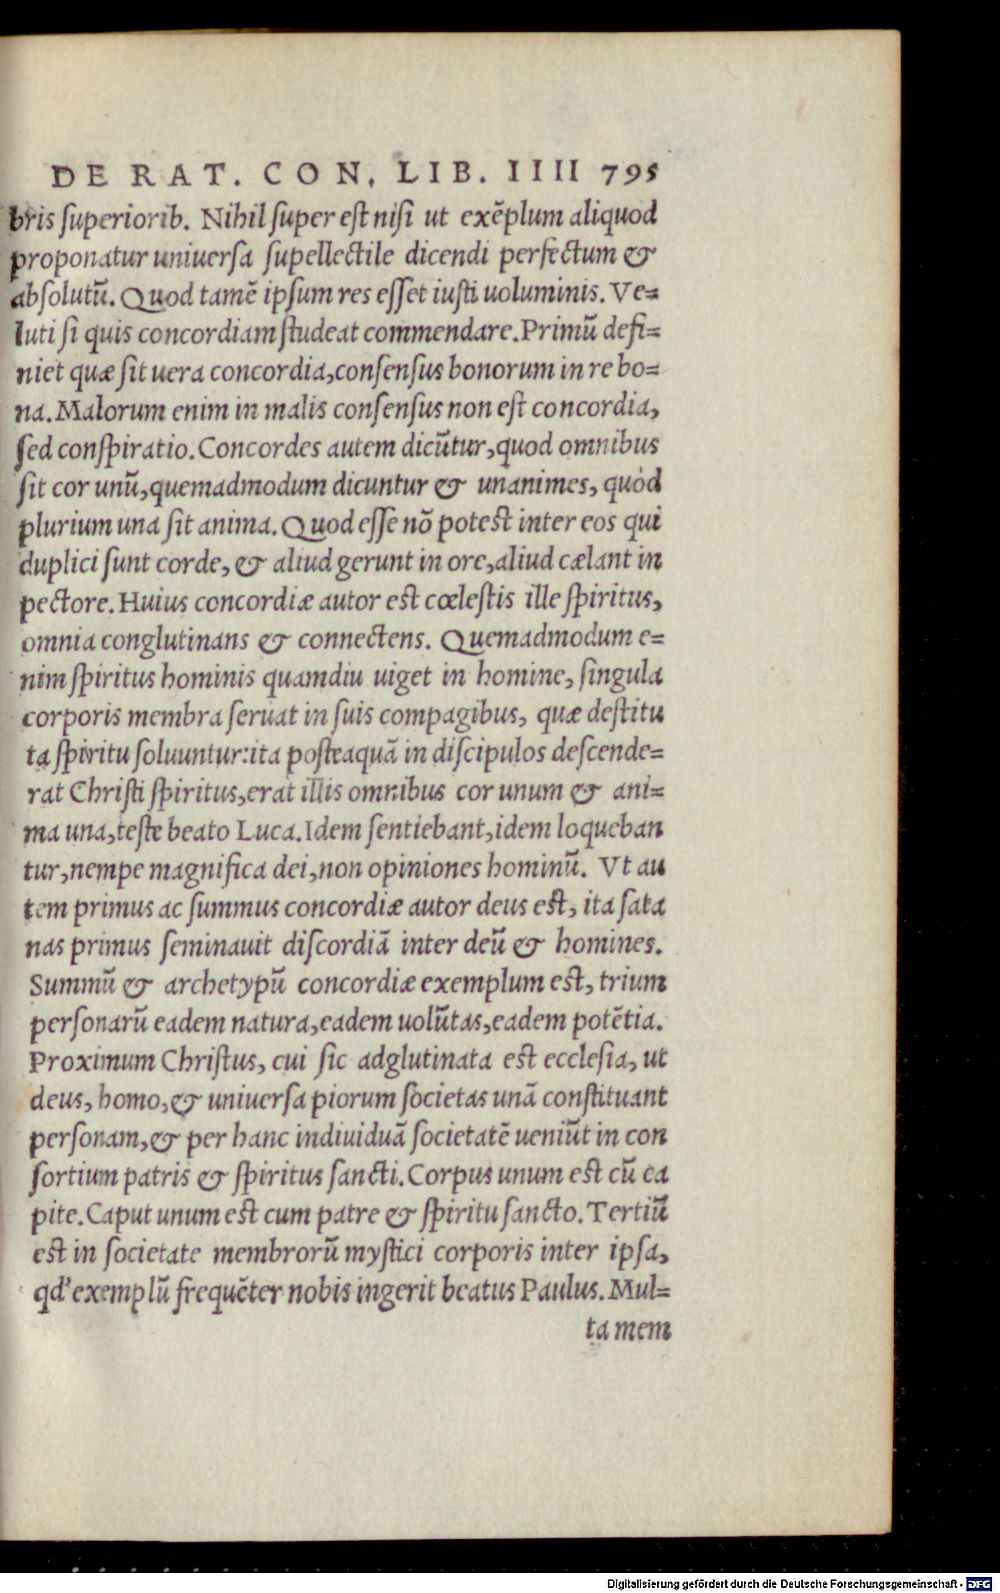 DE RAT. CON. LIB. IIII 795
bris superiorib. Nihil super est nisi ut exẽplum aliquod
proponatur uniuersa supellectile dicendi perfectum &
absolutũ. Quod tamẽ ipsum res esset iusti uoluminis. Ve=
luti si quis concordiam studeat commendare. Primũ defi=
niet quæ sit uera concordia, consensus bonorum in re bo=
na. Malorum enim in malis consensus non est concordia,
sed conspiratio. Concordes autem dicũtur, quod omnibus
sit cor unũ, quemadmodum dicuntur & unanimes, quòd
plurium una sit anima. Quod esse nõ potest inter eos qui
duplici sunt corde, & aliud gerunt in ore, aliud cælant in
pectore. Huius concordiæ autor est cœlestis ille spiritus,
omnia conglutinans & connectens. Quemadmodum e=
nim spiritus hominis quamdiu uiget in homine, singula
corporis membra seruat in suis compagibus, quæ destitu
ta spiritu soluuntur: ita posteaquã in discipulos descende=
rat Christi spiritus, erat illis omnibus cor unum & ani=
ma una, teste beato Luca. Idem sentiebant, idem loqueban
tur, nempe magnifica dei, non opiniones hominũ. Vt au
tem primus ac summus concordiæ autor deus est, ita sata
nas primus seminauit discordiã inter deũ & homines.
Summũ & archetypũ concordiæ exemplum est, trium
personarũ eadem natura, eadem uolũtas, eadem potẽtia.
Proximum Christus, cui sic adglutinata est ecclesia, ut
deus, homo, & uniuersa piorum societas unã constituant
personam, & per hanc indiuiduã societatẽ ueniũt in con
sortium patris & spiritus sancti. Corpus unum est cũ ca
pite. Caput unum est cum patre & spiritu sancto. Tertiũ
est in societate membrorũ mystici corporis inter ipsa,
qd' exemplũ frequẽter nobis ingerit beatus Paulus. Mul=
ta mem
Digitalisierung gefördert durch die Deutsche Forschungsgemeinschaft - DFG